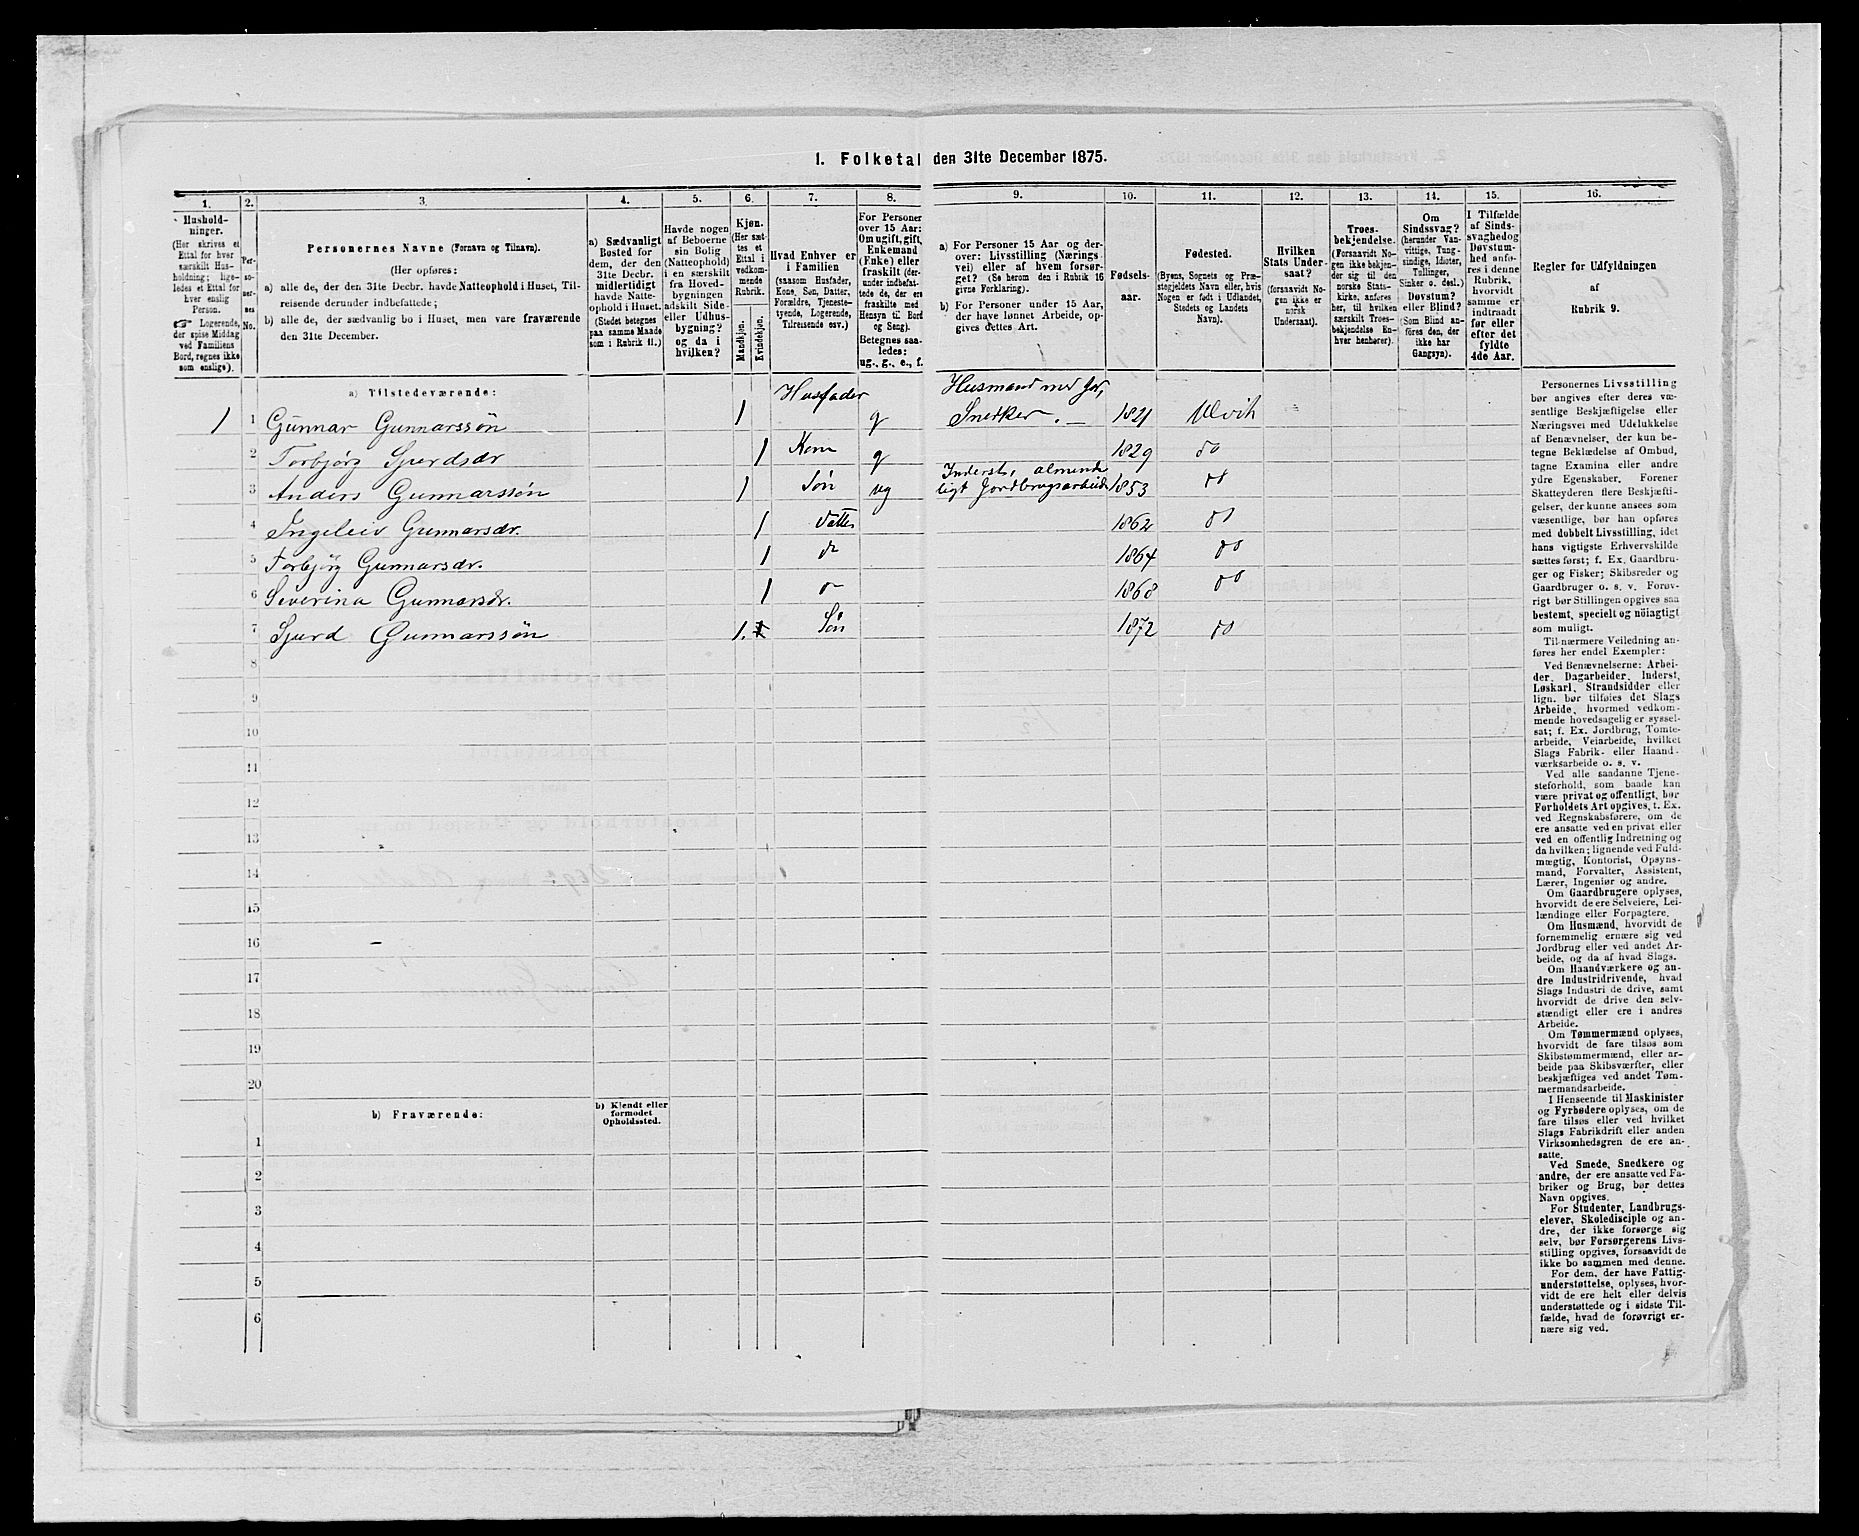 1. Folketal den 31te December 1875.
1. 2. 3. 4. 5. 6. 7. 8. 9. 10. 11. 12. 13. 14. 15. 16.
Hushold-
ninger.
(Her skrives et
Ettal for hver
særskilt Hus-
holdning; lige-
ledes et Ettal for
hver enslig
Person.
☞ Logerende,
der spise Middag
ved Familiens
Bord, regnes ikke
som enslige).
Per-
so-
ner-
nes
No.
Personernes Navne (Fornavn og Tilnavn).
(Her opføres:
a) alle de, der den 31te Decbr. havde Natteophold i Huset, Til-
reisende derunder indbefattede;
b) alle de, der sædvanlig bo i Huset, men vare fraværende
den 31te December.
a) Sædvanligt
Bosted for
dem, der den
31te Decbr.
midlertidigt
havde Natte-
ophold i Huset.
(Stedet betegnes
paa samme Maade
som i Rubrik 11.)
Havde nogen
af Beboerne
sin Bolig
(Natteophold)
i en særskilt
fra Hoved-
bygningen
adskilt Side-
eller Udhus-
bygning?
og da i
hvilken?
Kjøn.
(Her sæt-
tes et
Ettal i
vedkom-
mende
Rubrik.
Mandkjøn.
Kvindekjøn.
Hvad Enhver er
i Familien
(saasom Husfader,
Kone, Søn, Datter,
Forældre, Tjeneste-
tyende, Logerende,
Tilreisende osv.)
For Personer
over 15 Aar:
Om ugift, gift,
Enkemand
(Enke) eller
fraskilt (der-
under indbefat-
tede, de der ere
fraskilte med
Hensyn til Bord
og Seng).
Betegnes saa-
ledes:
ug., g., e., f.
a) For Personer 15 Aar og der-
over: Livsstilling (Nærings-
vei) eller af hvem forsør-
get? (Se herom den i Rubrik 16
givne Forklaring).
b) For Personer under 15 Aar,
der have lønnet Arbeide, op-
gives dettes Art.
Fødsels-
aar.
Fødested.
(Byens, Sognets og Præ-
stegjeldets Navn eller, hvis
Nogen er født i Udlandet,
Stedets og Landets
Navn).
Hvilken
Stats Under-
saat?
(forsaavidt No-
gen ikke er
norsk
Undersaat).
Troes-
bekjendelse.
(Forsaavidt No-
gen ikke bekjen-
der sig til den
norske Stats-
kirke, anføres
her, til hvilken
særskilt Troes-
bekjendelse En-
hver henhører).
Om
Sindssvag?
(herunder Van-
vittige, Tung-
sindige, Idioter,
Tullinger,
Sinker o. desl.)
Døvstum?
eller Blind?
(Som Blind an-
føres den, der
ikke har
Gangsyn).
I Tilfælde
af Sinds-
svaghed og
Døvstum-
hed anfø-
res i denne
Rubrik,
hvorvidt
samme er
indtraadt
før eller
efter det
fyldte
4de Aar.
Regler for Udfyldningen
af
Rubrik 9.
a) Tilstedeværende:
1 1 Gunnar Gunnarssøn 1 Husfader g Husmand med Jor, Snedker. — 1821 Ulvik
2 Torbjørg Sjurdsdr 1 Kone g 1829 do
3 Anders Gunnarssøn 1 Søn ug Inderst, almindeligt Jordbrugsarbeide 1853 do
4 Ingeleiv Gunnarsdr. 1 Datter 1862 do
5 Torbjørg Gunnarsdr. 1 do 1864 do
6 Severina Gunnarsdr. 1 do 1868 do
7 Sjurd Gunnarssøn 1. Søn 1872 do
8
9
10
11
12
13
14
15
16
17
18
19
20
b) Fraværende:
b) Kjendt eller
formodet
Opholdssted.
1
2
3
4
5
6
Personernes Livsstilling
bør angives efter deres væ-
sentlige Beskjæftigelse eller
Næringsvei med Udelukkelse
af Benævnelser, der kun be-
tegne Beklædelse af Ombud,
tagne Examina eller andre
ydre Egenskaber. Forener
Skatteyderen flere Beskjæfti-
gelser, der kunne ansees som
væsentlige, bør han opføres
med dobbelt Livsstilling, idet
hans vigtigste Erhvervskilde
sættes først; f. Ex. Gaardbru-
ger og Fisker; Skibsreder og
Gaardbruger o. s. v. Forøv-
rigt bør Stillingen opgives saa
bestemt, specielt og nøiagtigt
som muligt.
Til nærmere Veiledning an-
føres her endel Exempler:
Ved Benævnelserne: Arbei-
der, Dagarbeider, Inderst,
Løskarl, Strandsidder eller
lign. bør tilføies det Slags
Arbeide, hvormed vedkom-
mende hovedsagelig er syssel-
sat; f. Ex. Jordbrug, Tomte-
arbeide, Veiarbeide, hvilket
Slags Fabrik- eller Haand-
værksarbeide o. s. v.
Ved alle saadanne Tjene-
steforhold, som baade kan
være privat og offentligt, bør
Forholdets Art opgives, t. Ex.
ved Regnskabsførere, om de
ere ansatte ved en privat eller
ved en offentlig Indretning og
da hvilken; lignende ved Fuld-
mægtig, Kontorist, Opsyns-
mand, Forvalter, Assistent,
Lærer, Ingeniør og andre.
Om Gaardbrugere oplyses,
hvorvidt de ere Selveiere, Lei-
lændinge eller Forpagtere.
Om Husmænd, hvorvidt de
fornemmelig ernære sig ved
Jordbrug eller ved andet Ar-
beide, og da af hvad Slags.
Om Haandværkere og an-
dre Industridrivende, hvad
Slags Industri de drive, samt
hvorvidt de drive den selv-
stændigt eller ere i andres
Arbeide.
Om Tømmermænd oplyses,
hvorvidt de fare tilsøs som
Skibstømmermænd, eller ar-
beide paa Skibsværfter, eller
beskjæftiges ved andet Tøm-
mermandsarbeide.
I Henseende til Maskinister
og Fyrbødere oplyses, om de
fare tilsøs eller ved hvilket
Slags Fabrikdrift eller anden
Virksomhedsgren de ere an-
satte.
Ved Smede, Snedkere og
andre, der ere ansatte ved Fa-
briker og Brug, bør dettes
Navn opgives.
For Studenter, Landbrugs-
elever, Skoledisciple og an-
dre, der ikke forsørge sig
selv, bør Forsørgerens Livs-
stilling opgives, forsaavidt de
ikke bo sammen med denne.
For dem, der have Fattig-
understøttelse, oplyses, hvor-
vidt de ere helt eller delvis
understøttede og i sidste Til-
fælde, hvad de forøvrigt er-
nære sig ved.